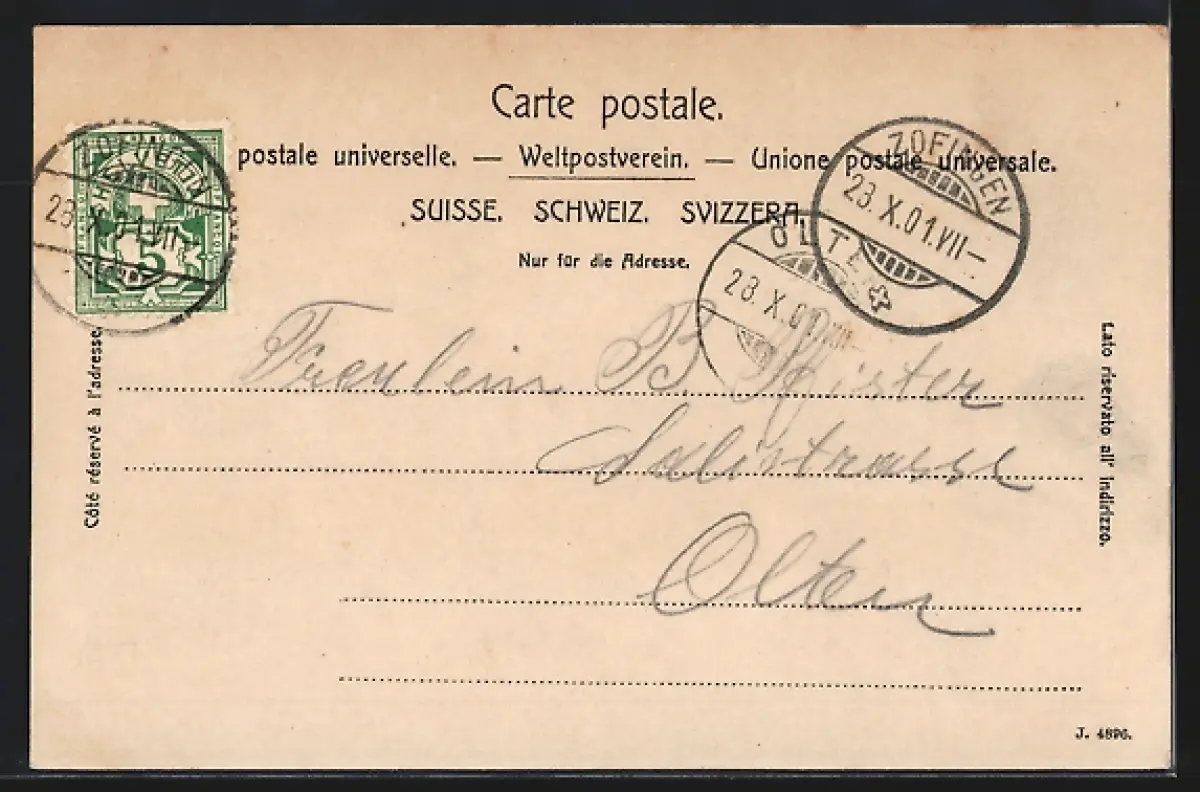 Carte postale.
postale universelle. — Weltpostverein. — Unione postale universale.
SUISSE. SCHWEIZ. SVIZZERA.
Nur für die Adresse.
ZOFINGEN
23. X. 01. VII—
OLTEN
23. X. 01. VIII
ZOFIN
23. X. 01. VII
5
Côté réservé à l'adresse.
Lato riservato all' indirizzo.
Fräulein B. Pfister
Solistrasse
Olten
J. 4896.